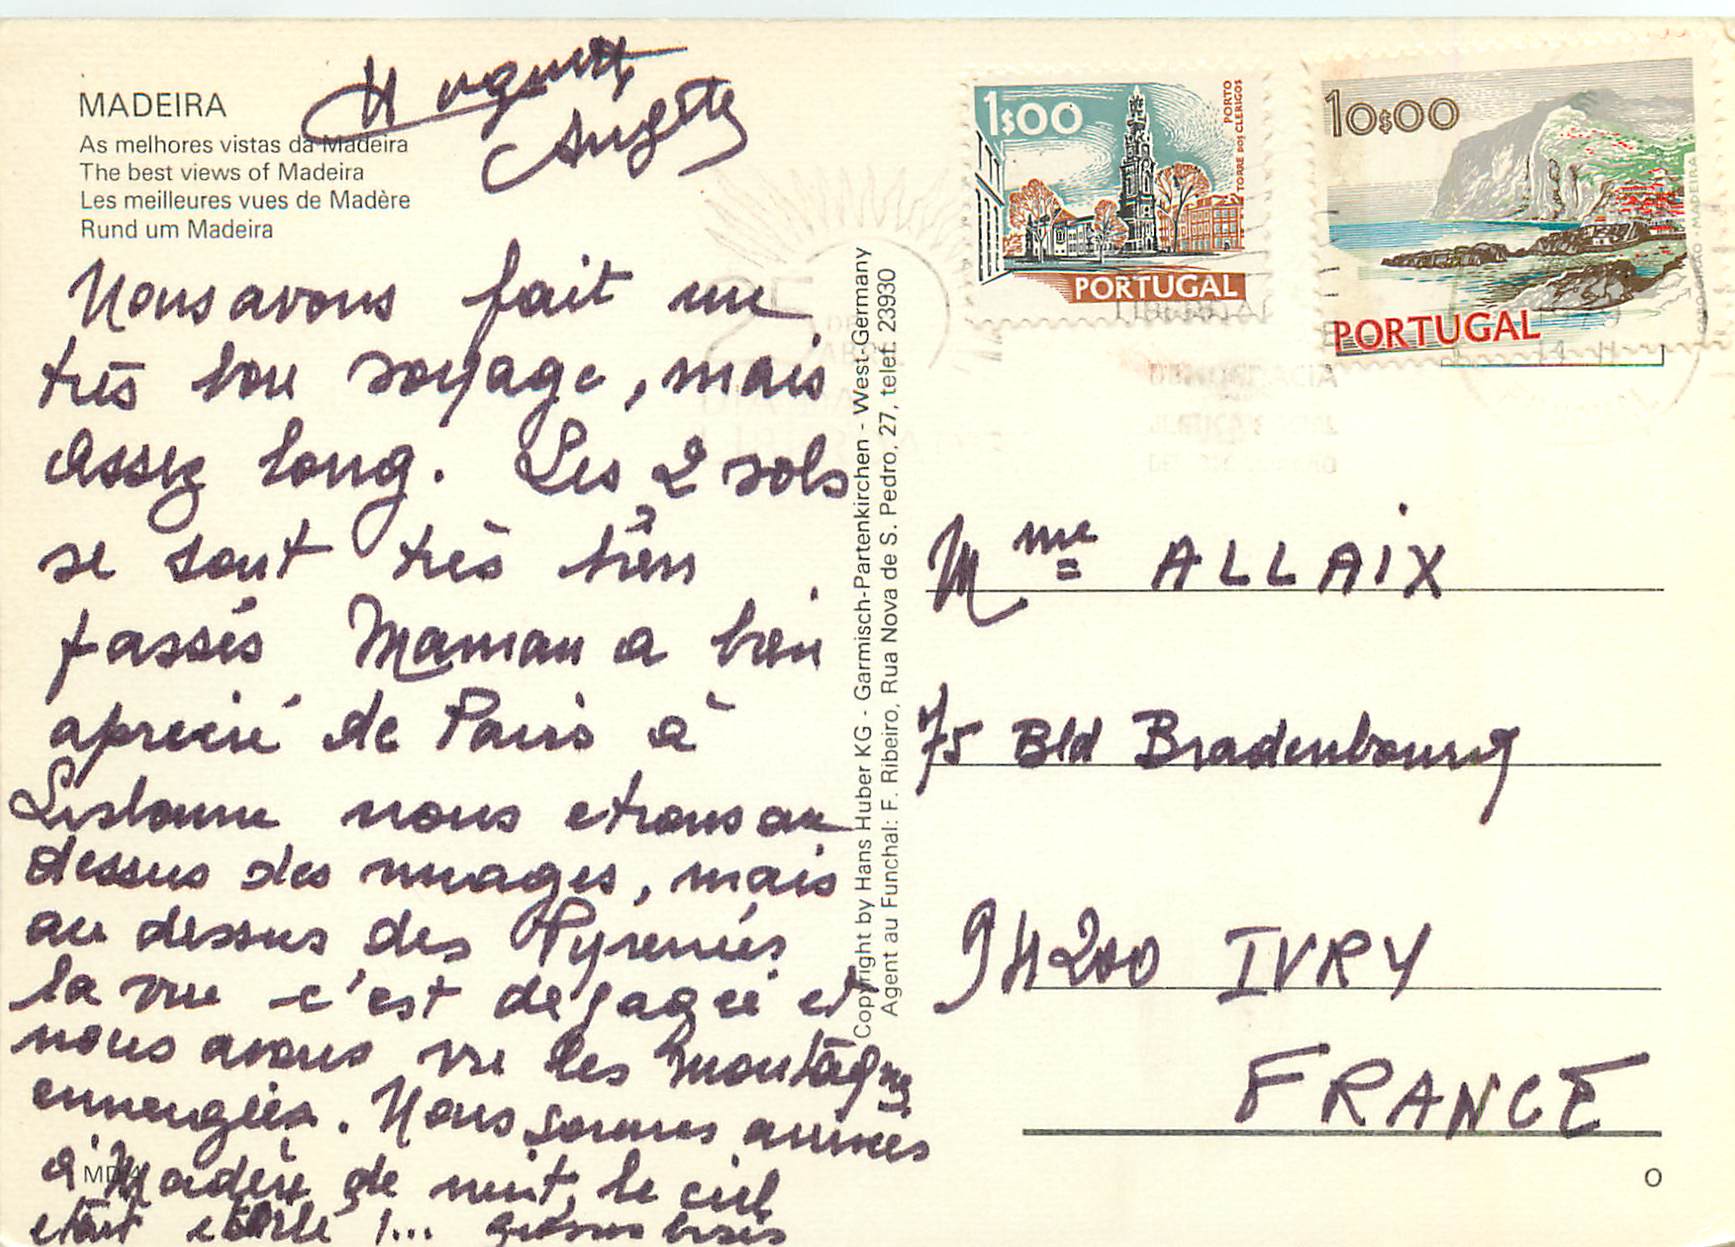 MADEIRA
As melhores vistas da Madeira
The best views of Madeira
Les meilleures vues de Madère
Rund um Madeira
Huguette
Angèle
Nous avons fait un
très bon voyage, mais
assez long. Les 2 vols
se sont très bien
passés Maman a bien
aprecié de Paris à
Lisbonne nous etions au
dessus des nuages, mais
au dessus des Pyrenées
la vue c'est degagée et
nous avons vu les montagnes
enneugées. Nous sommes arrivées
à Madère de nuit, le ciel
etait etoilé !... grosses bises
MD
Copyright by Hans Huber KG - Garmisch-Partenkirchen - West-Germany
Agent au Funchal: F. Ribeiro, Rua Nova de S. Pedro, 27, telef. 23930
1$00
PORTO
TORRE DOS CLERIGOS
PORTUGAL
10$00
MADEIRA
PORTUGAL
25
DE
ABRIL
Mme ALLAIX
75 Bld Bradenbourg
94200 IVRY
FRANCE
O